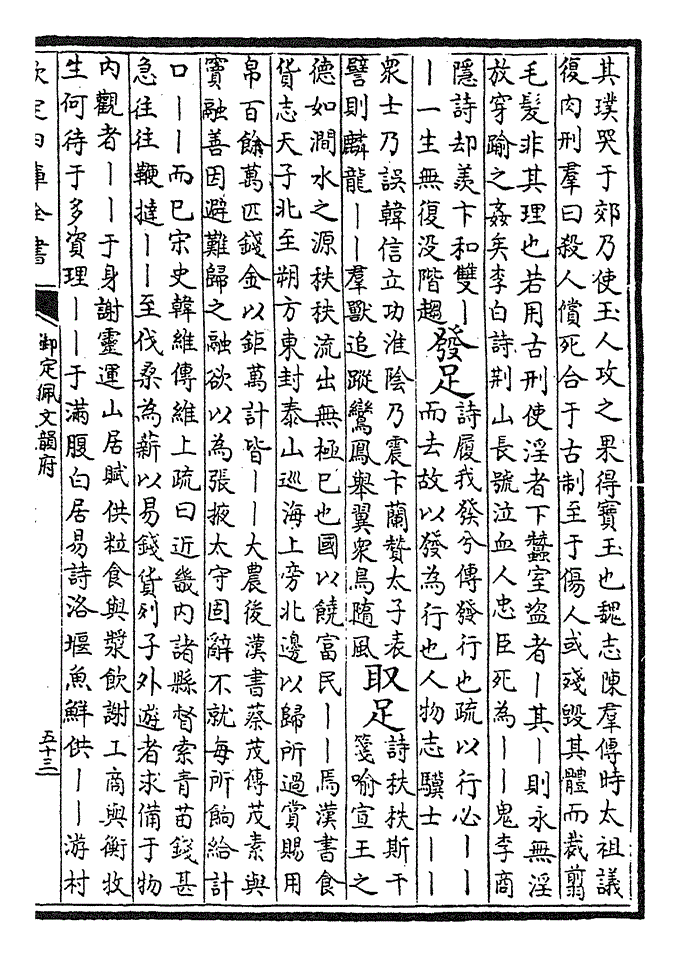 其璞哭于郊乃使玉人攻之果得寶玉也魏志陳羣傳時太祖議
復肉刑羣曰殺人償死合于古制至于傷人或殘毀其體而裁翦
毛髮非其理也若用古刑使淫者下蠶室盜者丨其丨則永無淫
放穿踰之姦矣李白詩荆山長號泣血人忠臣死為丨丨鬼李商
隱詩却羨卞和雙丨
丨一生無復没階趨
發足
詩履我發兮傳發行也疏以行必丨丨
而去故以發為行也人物志驥士丨丨
衆士乃誤韓信立功淮陰乃震卞蘭贊太子表
譬則麟龍丨丨羣獸追蹤鸞鳳舉翼衆鳥隨風
取足
詩秩秩斯干
箋喻宣王之
德如澗水之源秩秩流出無極已也國以饒富民丨丨焉漢書食
貨志天子北至朔方東封泰山巡海上旁北邊以歸所過賞賜用
帛百餘萬匹錢金以鉅萬計皆丨丨大農後漢書蔡茂傳茂素與
竇融善因避難歸之融欲以為張掖太守固辭不就每所餉給計
口丨丨而已宋史韓維傳維上疏曰近畿内諸縣督索青苗錢甚
急往往鞭撻丨丨至伐桑為薪以易錢貨列子外遊者求備于物
内觀者丨丨于身謝靈運山居賦供粒食與漿飲謝工商與衡牧
生何待于多資理丨丨于滿腹白居易詩洛堰魚鮮供丨丨游村
欽定四庫全書
御定佩文韻府
五十三